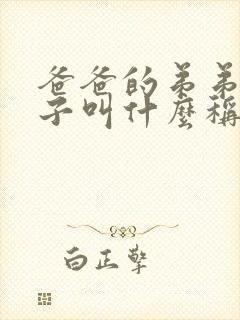 爸爸的弟弟
子叫什麼稱
白正擎